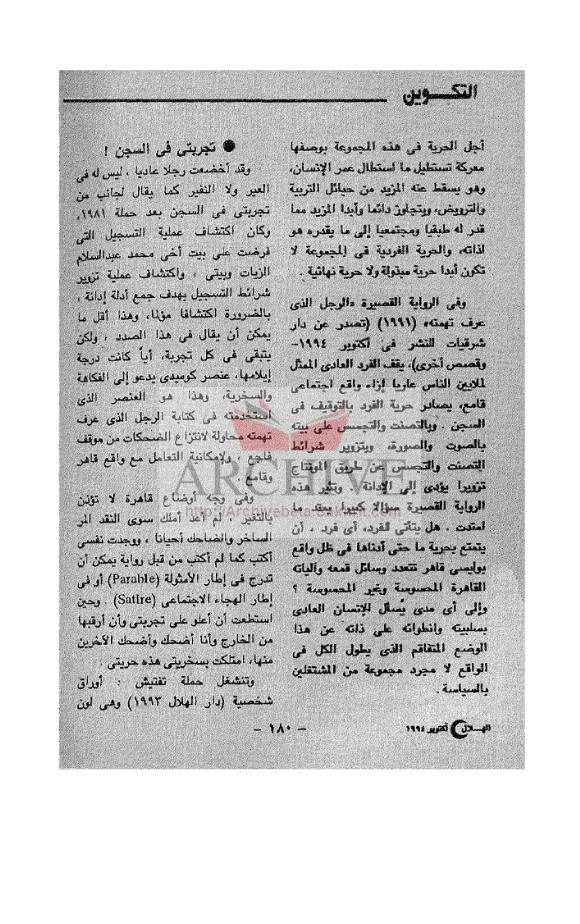 التكـــوين
أجل الحرية فى هذه المجموعة بوصفها
معركة تستطيل ما استطال عمر الإنسان،
وهو يسقط عنه المزيد من حبائل التربية
والترويض، ويتجاوز دائما وأبدا المزيد مما
قدر له طبقيا ومجتمعيا إلى ما يقدره هو
لذاته، والحرية الفردية فى المجموعة لا
تكون أبدا حرية مبذولة ولا حرية نهائية .
وفى الرواية القصيرة «الرجل الذى
عرف تهمته» (١٩٩١) (تصدر عن دار
شرقيات النشر فى أكتوبر ١٩٩٤-
وقصص أخرى)، يقف الفرد العادى الممثل
لملايين الناس عاريا إزاء واقع اجتماعى
قامع، يصادر حرية الفرد بالتوقيف فى
السجن . وبالتصنت والتجسس على بيته
بالصوت والصورة، وبتزوير شرائط
التصنت والتجسس عن طريق المونتاج
تزويرا يؤدى إلى الإدانة . وتثير هذه
الرواية القصيرة سؤالا كبيرا يمتد ما
امتدت . هل يتأتى للفرد، أى فرد ، أن
يتمتع بحرية ما حتى أدناها فى ظل واقع
بوليسى قاهر تتعدد وسائل قمعه وآلياته
القاهرة المحسوسة وغير المحسوسة ؟
وإلى أى مدى يُسأل الإنسان العادى
بسلبيته وانطوائه على ذاته عن هذا
الوضع المتفاقم الذى يطول الكل فى
الواقع لا مجرد مجموعة من المشتغلين
بالسياسة .
● تجربتى فى السجن !
وقد أخضعت رجلا عاديا ، ليس له فى
العير ولا النفير كما يقال لجانب من
تجربتى فى السجن بعد حملة ١٩٨١،
وكان اكتشاف عملية التسجيل التى
فرضت على بيت أخى محمد عبدالسلام
الزيات وبيتى ، واكتشاف عملية تزوير
شرائط التسجيل بهدف جمع أدلة إدانة ،
بالضرورة اكتشافا مؤلما، وهذا أقل ما
يمكن أن يقال فى هذا الصدد ، ولكن
يتبقى فى كل تجربة، أياً كانت درجة
إيلامها، عنصر كوميدى يدعو إلى الفكاهة
والسخرية، وهذا هو العنصر الذى
استخدمته فى كتابة الرجل الذى عرف
تهمته محاولة لانتزاع الضحكات من موقف
فاجع ، ولإمكانية التعامل مع واقع قاهر
وقامع .
وفى وجه أوضاع قاهرة لا تؤذن
بالتغير ، لم أعد أملك سوى النقد المر
الساخر والضاحك أحيانا ، ووجدت نفسى
أكتب كما لم أكتب من قبل رواية يمكن أن
تدرج فى إطار الأمثولة (Parable) أو فى
إطار الهجاء الاجتماعى (Satire) . وحين
استطعت أن أعلو على تجربتى وأن أرقبها
من الخارج وأنا أضحك وأضحك الآخرين
منها، امتلكت بسخريتى هذه حريتى .
وتنشغل حملة تفتيش : أوراق
شخصية (دار الهلال ١٩٩٣) وهى لون
ARCHIVE
http://Archivebeta.Sakhrit.com
الهلال أكتوبر ١٩٩٤
- ١٨٠ -